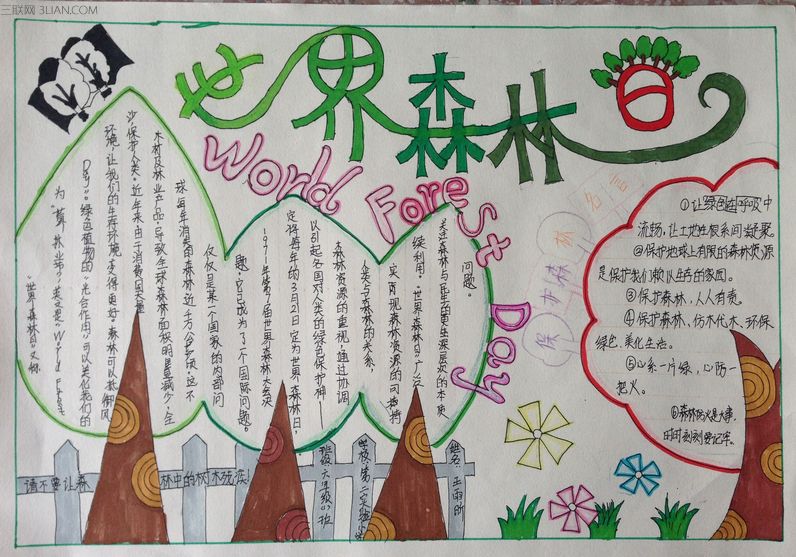 三联网 3LIAN.COM
世界森林日
World Forest Day
“世界森林日”又称
为“葬林节”,英文是“World Forest
Day”。绿色植物的“光合作用”可以美化我们的
环境,让我们的生存环境变得更好。森林可以抵御风
沙,保护人类。近年来由于消费国大量
木材及林业产品,导致全球森林面积明显减少,全
球每年消失的森林近千万公顷。这不
仅仅是某一个国家的内部问
题,它已成为了一个国际问题。
1971年第7届世界森林大会决
定将每年的3月21日定为世界森林日,
以引起各国对人类的绿色保护神——
森林资源的重视,通过协调
人类与森林的关系,
实现森林资源的可持
续利用。“世界森林日”广泛
关注森林与民生的更生深层次的本质
问题。
保护森林
①让绿色在呼吸中
流畅,让土地在眼间凝聚。
②保护地球上有限的森林资源
是保护我们赖以生存的家园。
③保护森林,人人有责。
④保护森林、仿木代木、环保
绿色、美化生活。
⑤心系一片绿,心防一
把火。
⑥森林防火是大事,
时时刻刻要记牢。
请不要让森林中的树木玩浪!
班级:六年级(3)班
学校:第二实验小
姓名:王雨昕